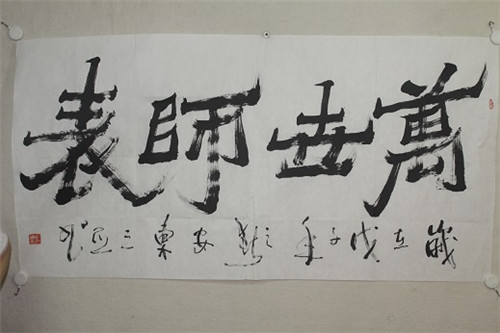 萬世師表
歲在戊子年
安東